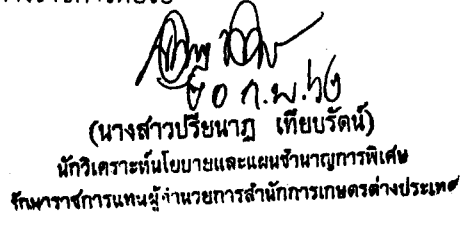 ๒๐ ก.พ. ๖๒
(นางสาวปรียนาฏ เทียบรัตน์)
นักวิเคราะห์นโยบายและแผนชำนาญการพิเศษ
รักษาราชการแทนผู้อำนวยการสำนักการเกษตรต่างประเทศ